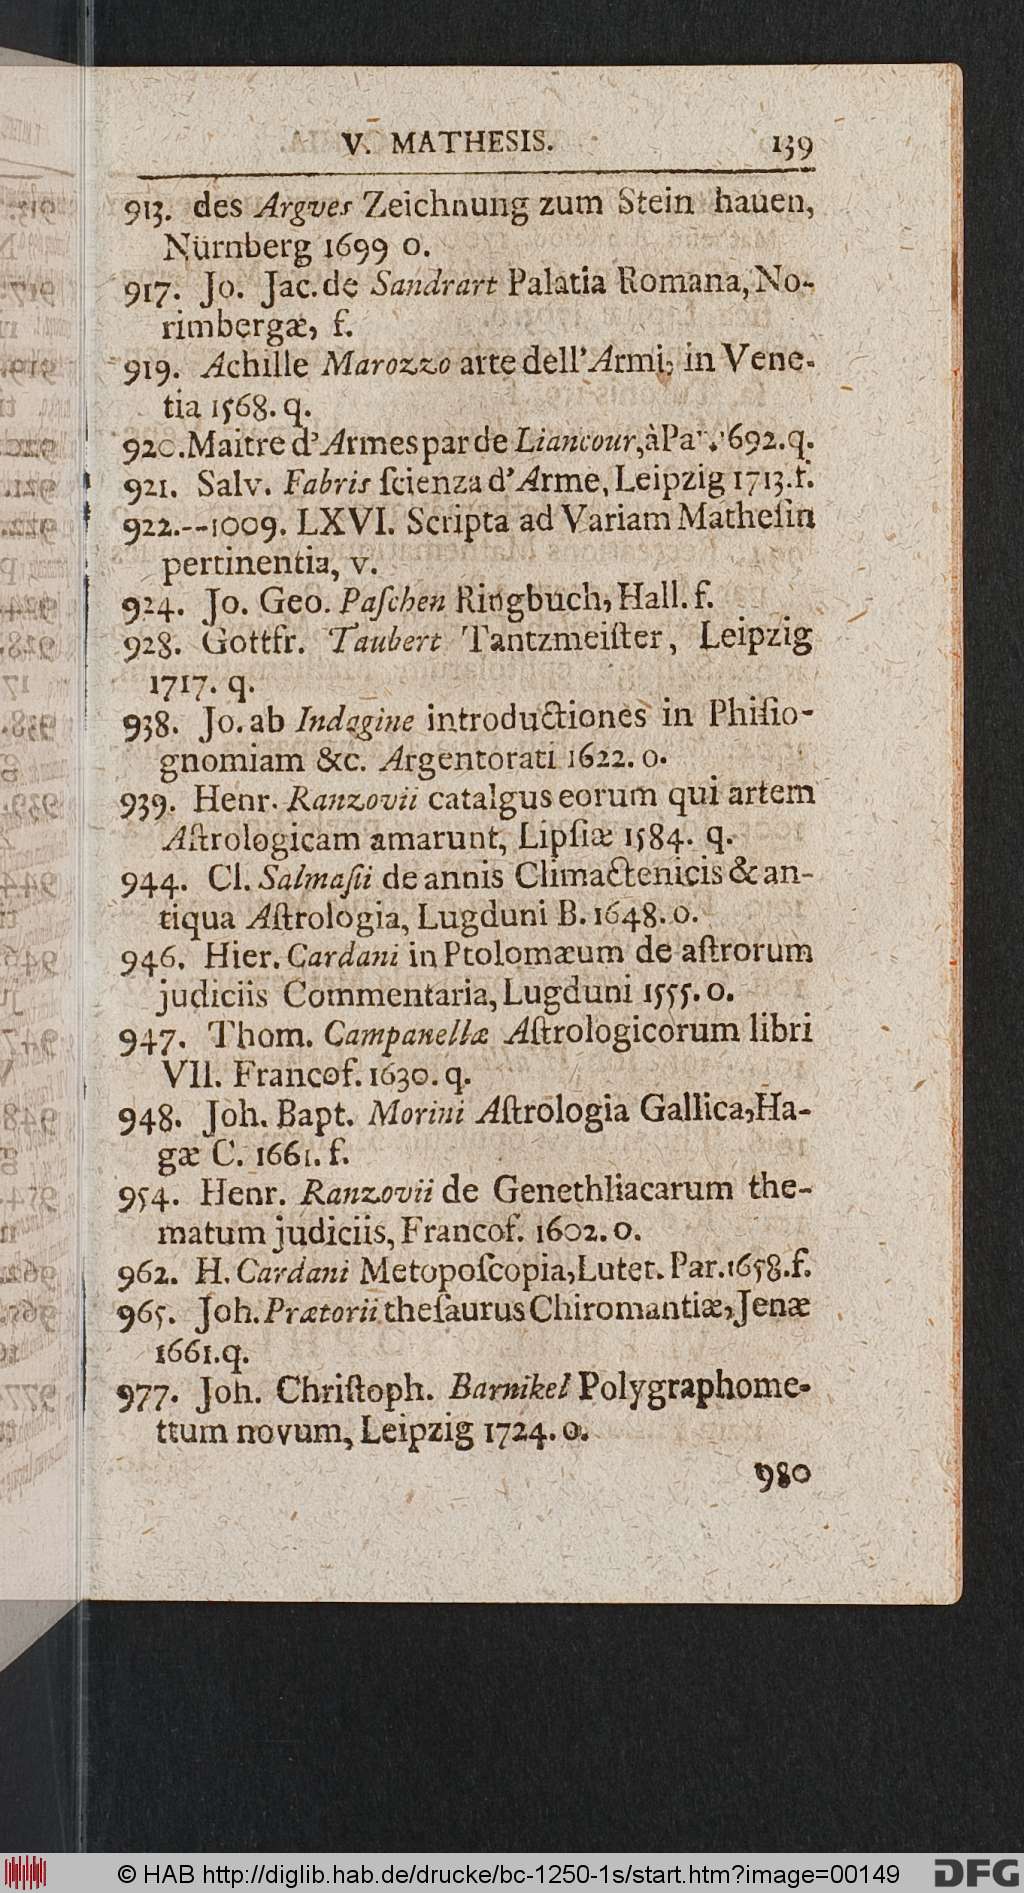 V. MATHESIS. 139
913. des Argves Zeichnung zum Stein hauen,
Nürnberg 1699 o.
917. Jo. Jac. de Sandrart Palatia Romana, No-
rimbergæ, f.
919. Achille Marozzo arte dell' Armi, in Vene-
tia 1568. q.
920. Maitre d' Armes par de Liancour, à 692. q.
921. Salv. Fabris ſcienza d' Arme, Leipzig 1713. f.
922.--1009. LXVI. Scripta ad Variam Matheſin
pertinentia, v.
924. Jo. Geo. Paſchen Ringbuch, Hall. f.
928. Gottfr. Taubert Tantzmeiſter, Leipzig
1717. q.
938. Jo. ab Indagine introductiones in Phiſio-
gnomiam &c. Argentorati 1622. o.
939. Henr. Ranzovii catalgus eorum qui artem
Aſtrologicam amarunt, Lipſiæ 1584. q.
944. Cl. Salmaſii de annis Climactenicis & an-
tiqua Aſtrologia, Lugduni B. 1648. o.
946. Hier. Cardani in Ptolomæum de aſtrorum
judiciis Commentaria, Lugduni 1555. o.
947. Thom. Campanellæ Aſtrologicorum libri
VII. Francof. 1630. q.
948. Joh. Bapt. Morini Aſtrologia Gallica, Ha-
gæ C. 1661. f.
954. Henr. Ranzovii de Genethliacarum the-
matum judiciis, Francof. 1602. o.
962. H. Cardani Metopoſcopia, Lutet. Par. 1658. f.
965. Joh. Prætorii theſaurus Chiromantiæ, Jenæ
1661. q.
977. Joh. Chriſtoph. Barnikel Polygraphome-
trum novum, Leipzig 1724. o.
980
© HAB http://diglib.hab.de/drucke/bc-1250-1s/start.htm?image=00149
DFG